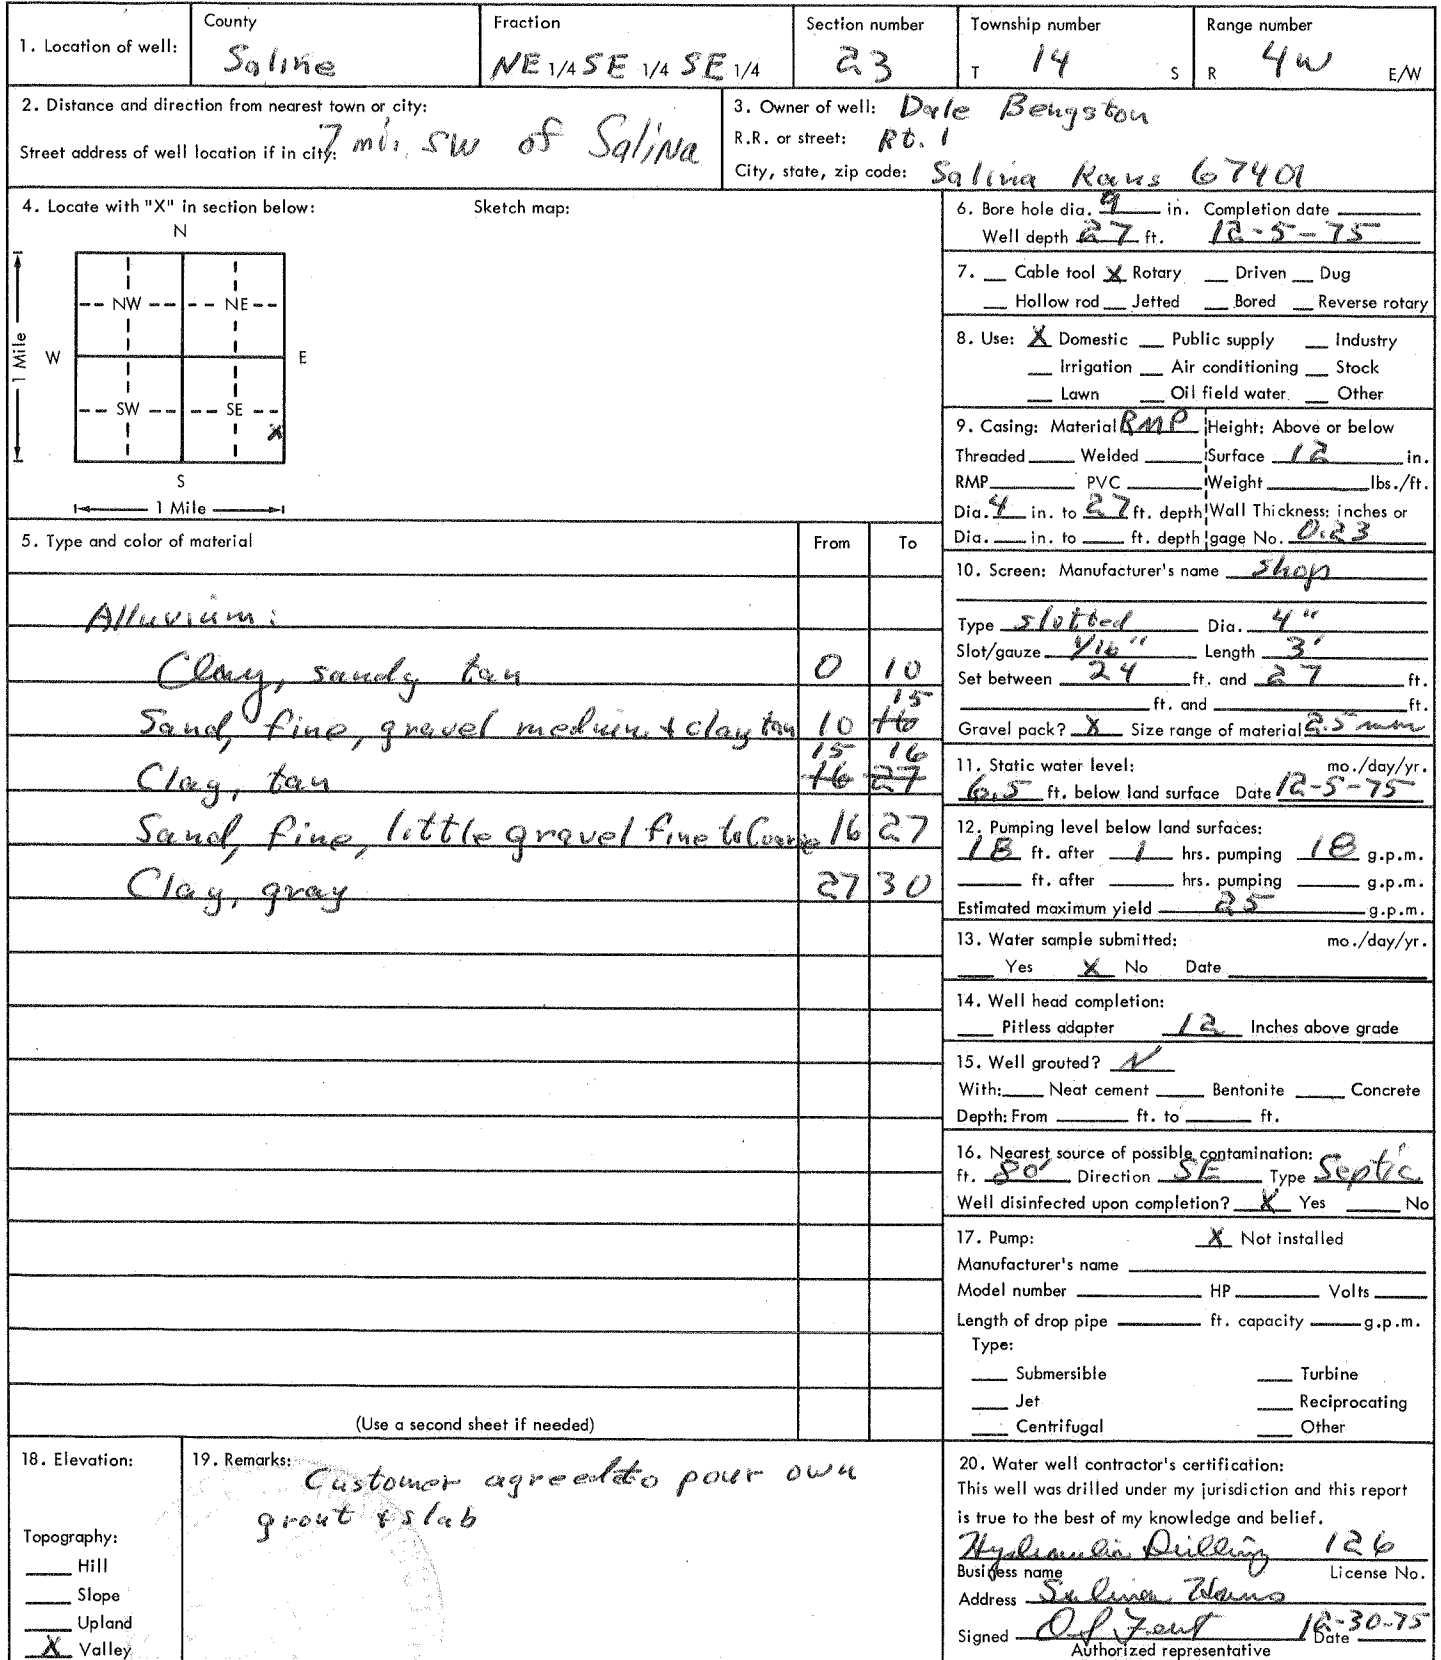 1. Location of well: County Saline Fraction NE 1/4 SE 1/4 SE 1/4 Section number 23 Township number T 14 S Range number R 4W E/W
2. Distance and direction from nearest town or city: 7 mi. SW of Salina
Street address of well location if in city:
3. Owner of well: Dale Bengston
R.R. or street: Rt. 1
City, state, zip code: Salina Kans 67401
4. Locate with "X" in section below: Sketch map:
N
NW NE
W E
1 Mile
SW SE
X
S
1 Mile
5. Type and color of material From To
Alluvium:
Clay, sandy tan 0 10
Sand, fine, gravel medium & clay tan 10 15 16
Clay, tan 15 16 16 27
Sand, fine, little gravel fine to Coarse 16 27
Clay, gray 27 30
(Use a second sheet if needed)
6. Bore hole dia. 9 in. Completion date
Well depth 27 ft. 12-5-75
7. Cable tool X Rotary Driven Dug
Hollow rod Jetted Bored Reverse rotary
8. Use: X Domestic Public supply Industry
Irrigation Air conditioning Stock
Lawn Oil field water Other
9. Casing: Material RMP Height: Above or below
Threaded Welded Surface 12 in.
RMP PVC Weight lbs./ft.
Dia. 4 in. to 27 ft. depth Wall Thickness: inches or
Dia. in. to ft. depth gage No. 0.23
10. Screen: Manufacturer's name Shop
Type slotted Dia. 4"
Slot/gauze 1/16" Length 3'
Set between 24 ft. and 27 ft.
ft. and ft.
Gravel pack? X Size range of material 2.5 mm
11. Static water level: mo./day/yr.
6.5 ft. below land surface Date 12-5-75
12. Pumping level below land surfaces:
18 ft. after 1 hrs. pumping 18 g.p.m.
ft. after hrs. pumping g.p.m.
Estimated maximum yield 25 g.p.m.
13. Water sample submitted: mo./day/yr.
Yes X No Date
14. Well head completion:
Pitless adapter 12 Inches above grade
15. Well grouted? N
With: Neat cement Bentonite Concrete
Depth: From ft. to ft.
16. Nearest source of possible contamination:
ft. 80' Direction SE Type Septic
Well disinfected upon completion? X Yes No
17. Pump: X Not installed
Manufacturer's name
Model number HP Volts
Length of drop pipe ft. capacity g.p.m.
Type:
Submersible Turbine
Jet Reciprocating
Centrifugal Other
18. Elevation:
Topography:
Hill
Slope
Upland
X Valley
19. Remarks: Customer agreed to pour own
grout & slab
20. Water well contractor's certification:
This well was drilled under my jurisdiction and this report
is true to the best of my knowledge and belief.
Hydraulic Drilling 126
Business name License No.
Address Salina Kans
Signed O S Fent 12-30-75
Authorized representative Date